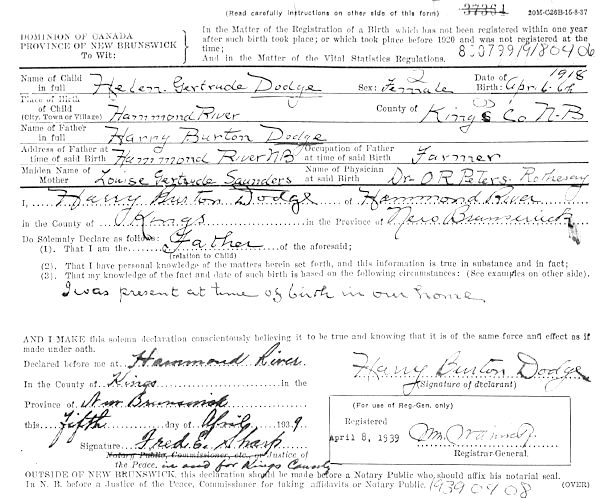 (Read carefully instructions on other side of this form) 37361 20M-C26B-15-8-37
DOMINION OF CANADA
PROVINCE OF NEW BRUNSWICK
To Wit:
In the Matter of the Registration of a Birth which has not been registered within one year
after such birth took place; or which took place before 1920 and was not registered at the
time;
And in the Matter of the Vital Statistics Regulations. 19180406
Name of Child in full Helen Gertrude Dodge Sex: Female 2 Date of Birth: Apr 6th 1918
Place of Birth of Child (City, Town or Village) Hammond River County of Kings Co N-B
Name of Father in full Harry Burton Dodge
Address of Father at time of said Birth Hammond River N B Occupation of Father at time of said Birth Farmer
Maiden Name of Mother Louise Gertrude Saunders Name of Physician at said Birth Dr O R Peters Rothesay
I, Harry Burton Dodge of Hammond River
in the County of Kings in the Province of New Brunswick
Do Solemnly Declare as follows:
(1). That I am the Father of the aforesaid;
(relation to Child)
(2). That I have personal knowledge of the matters herein set forth, and this information is true in substance and in fact;
(3). That my knowledge of the fact and date of such birth is based on the following circumstances: (See examples on other side).
I was present at time of birth in our home
AND I MAKE this solemn declaration conscientiously believing it to be true and knowing that it is of the same force and effect as if
made under oath.
Declared before me at Hammond River
In the County of Kings in the
Province of New Brunswick
this fifth day of April 1939
Signature Fred E. Sharp
Notary Public, Commissioner, etc., or Justice of
the Peace, in and for Kings County
Harry Burton Dodge
(Signature of declarant)
(For use of Reg-Gen. only)
Registered
April 8, 1939
Registrar-General.
OUTSIDE OF NEW BRUNSWICK, this declaration should be made before a Notary Public who should affix his notarial seal.
In N. B. before a Justice of the Peace, Commissioner for taking affidavits or Notary Public. (OVER)
19390408